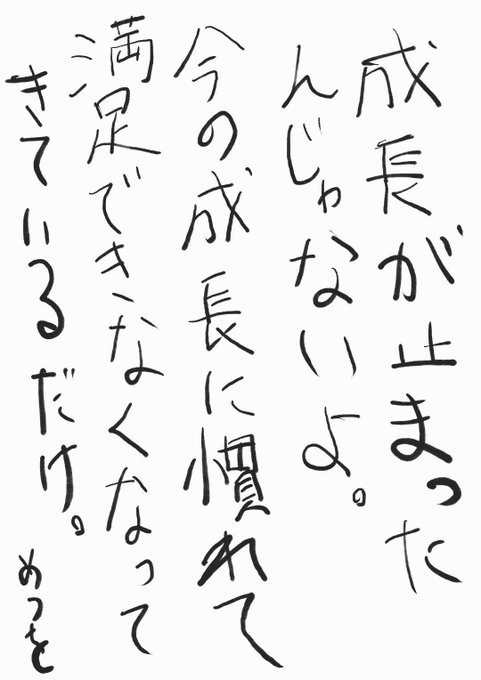 成長が止まった
んじゃないよ。
今の成長に慣れて
満足できなくなって
きているだけ。
めっせ